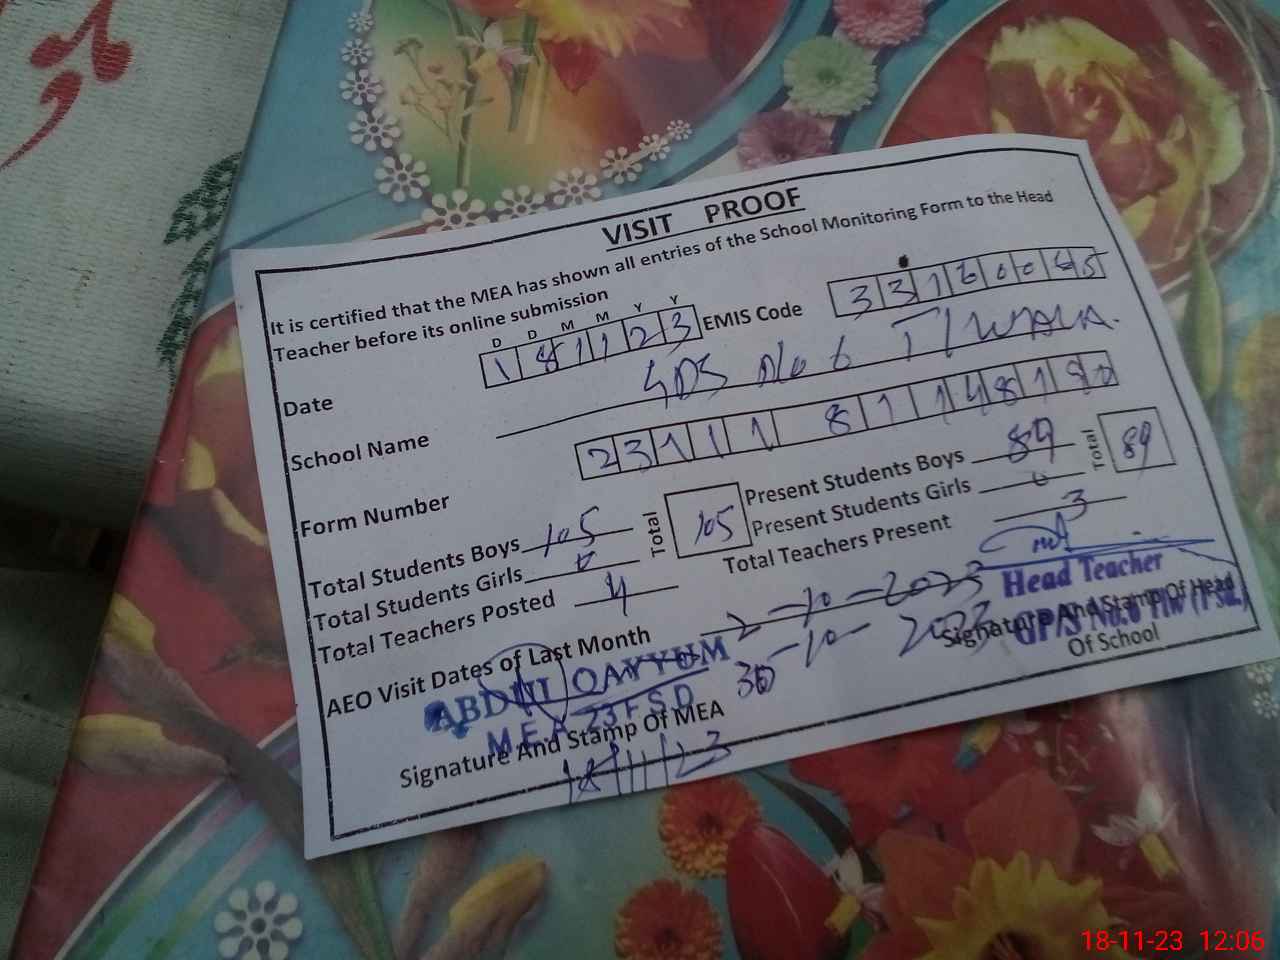 VISIT PROOF
It is certified that the MEA has shown all entries of the School Monitoring Form to the Head
Teacher before its online submission
D D M M Y Y
Date 181123 EMIS Code 33160045
School Name No 6 T/WALA
Form Number 23111 811148180
Total Students Boys 105 Total 105 Present Students Boys 89 Total 89
Total Students Girls 0 Present Students Girls 0
Total Teachers Posted 4 Total Teachers Present 3
AEO Visit Dates of Last Month 2-10-2023
30-10-2023
Head Teacher
Signature And Stamp Of Head
Of School
ABDUL QAYYUM
MEA 23 FSD
Signature And Stamp Of MEA
18/11/23
18-11-23 12:06